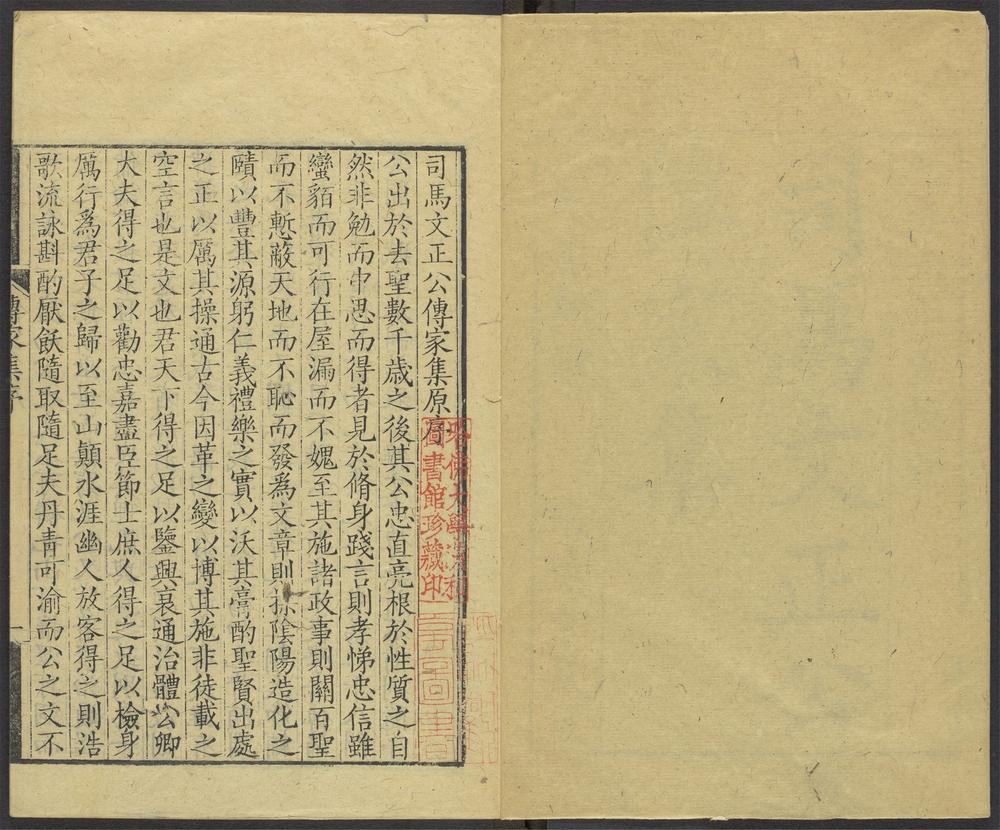 司馬文正公傳家集原序
公出於去聖數千歲之後其公忠直亮根於性質之自
然非勉而中思而得者見於脩身踐言則孝悌忠信雖
蠻貊而可行在屋漏而不媿至其施諸政事則關百聖
而不慙蔽天地而不恥而發爲文章則探陰陽造化之
賾以豐其源躬仁義禮樂之實以沃其膏酌聖賢出處
之正以厲其操通古今因革之變以博其施非徒載之
空言也是文也君天下得之足以鑒興衰通治體公卿
大夫得之足以勸忠嘉盡臣節士庶人得之足以檢身
厲行爲君子之歸以至山顛水涯幽人放客得之則浩
歌流詠斟酌厭飫隨取隨足夫丹青可渝而公之文不
傳家集序
一
哈佛大學漢和
圖書館珍藏印